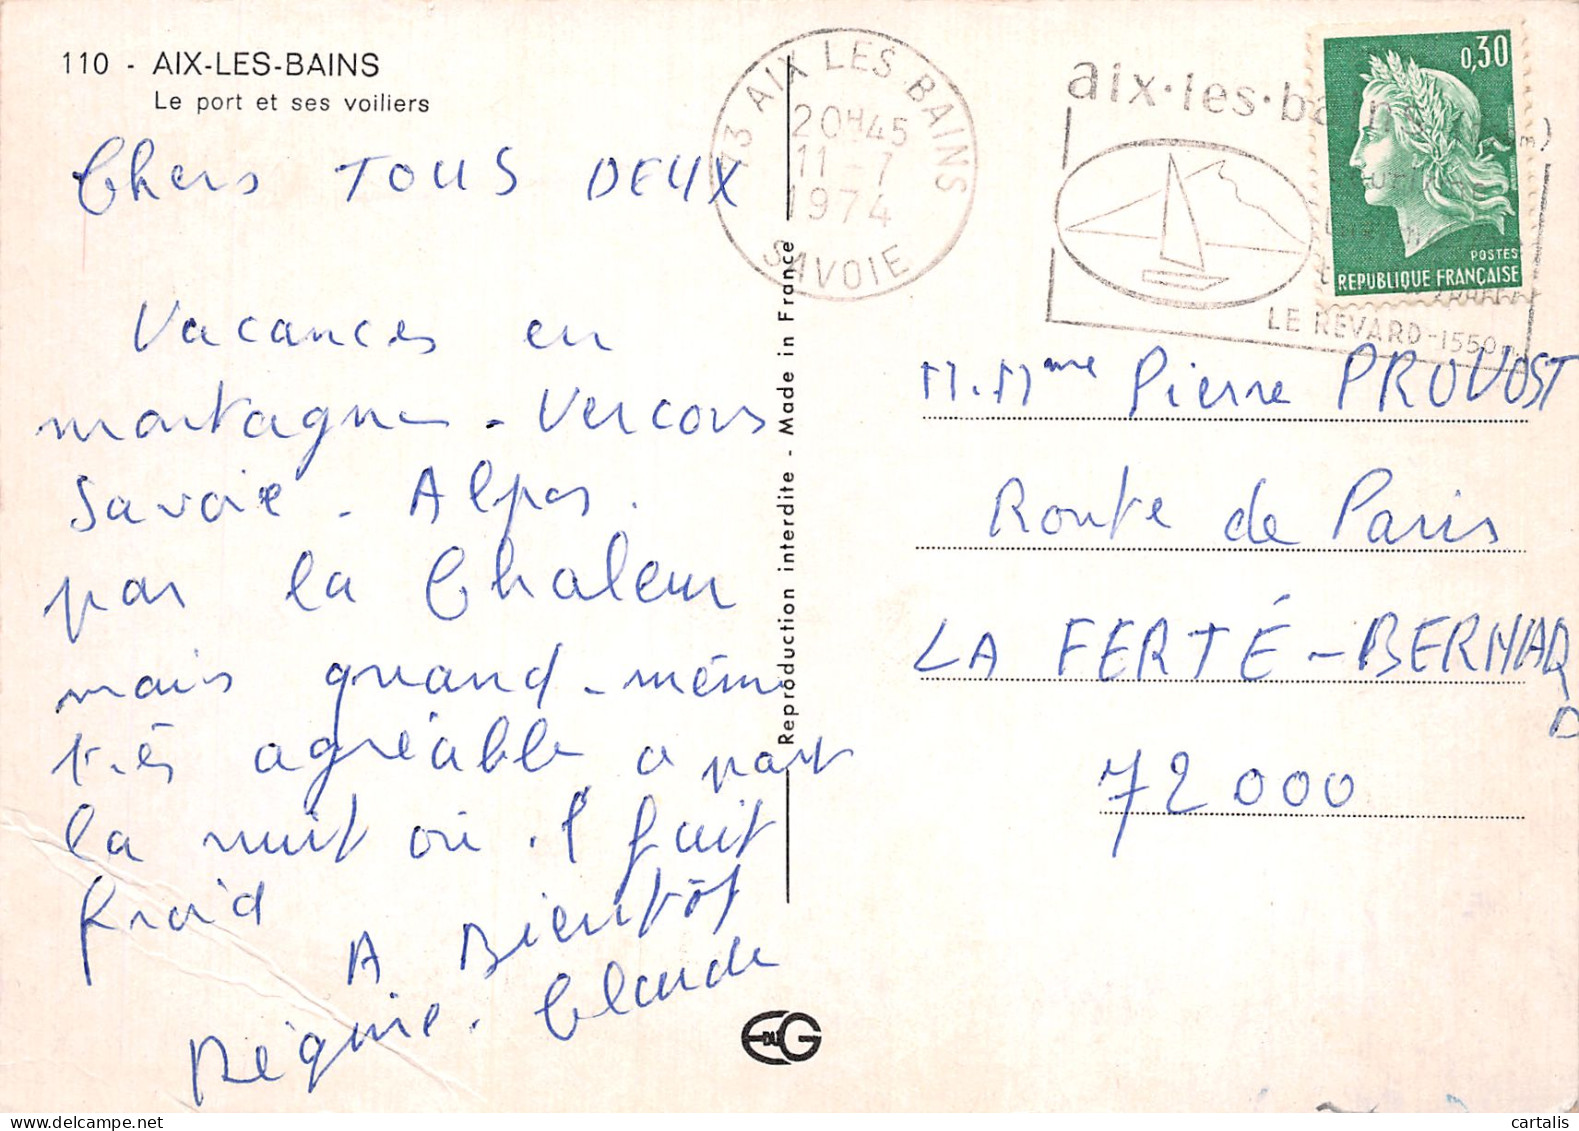 110 - AIX-LES-BAINS
Le port et ses voiliers
Chers TOUS DEUX
Vacances en
montagne - Vercors
Savoie - Alpes.
par la Chaleur
mais quand-même
très agréable a part
la nuit où il fait
froid
A Bientôt
Claude
Reproduction interdite - Made in France
73 AIX LES BAINS
20H45
11 - 7
1974
SAVOIE
aix·les·bains
LE REVARD-1550m
0,30
POSTES
REPUBLIQUE FRANÇAISE
M.Mme Pierre PROVOST
Route de Paris
LA FERTÉ-BERNAR
D
72000
EDUG
cartalis